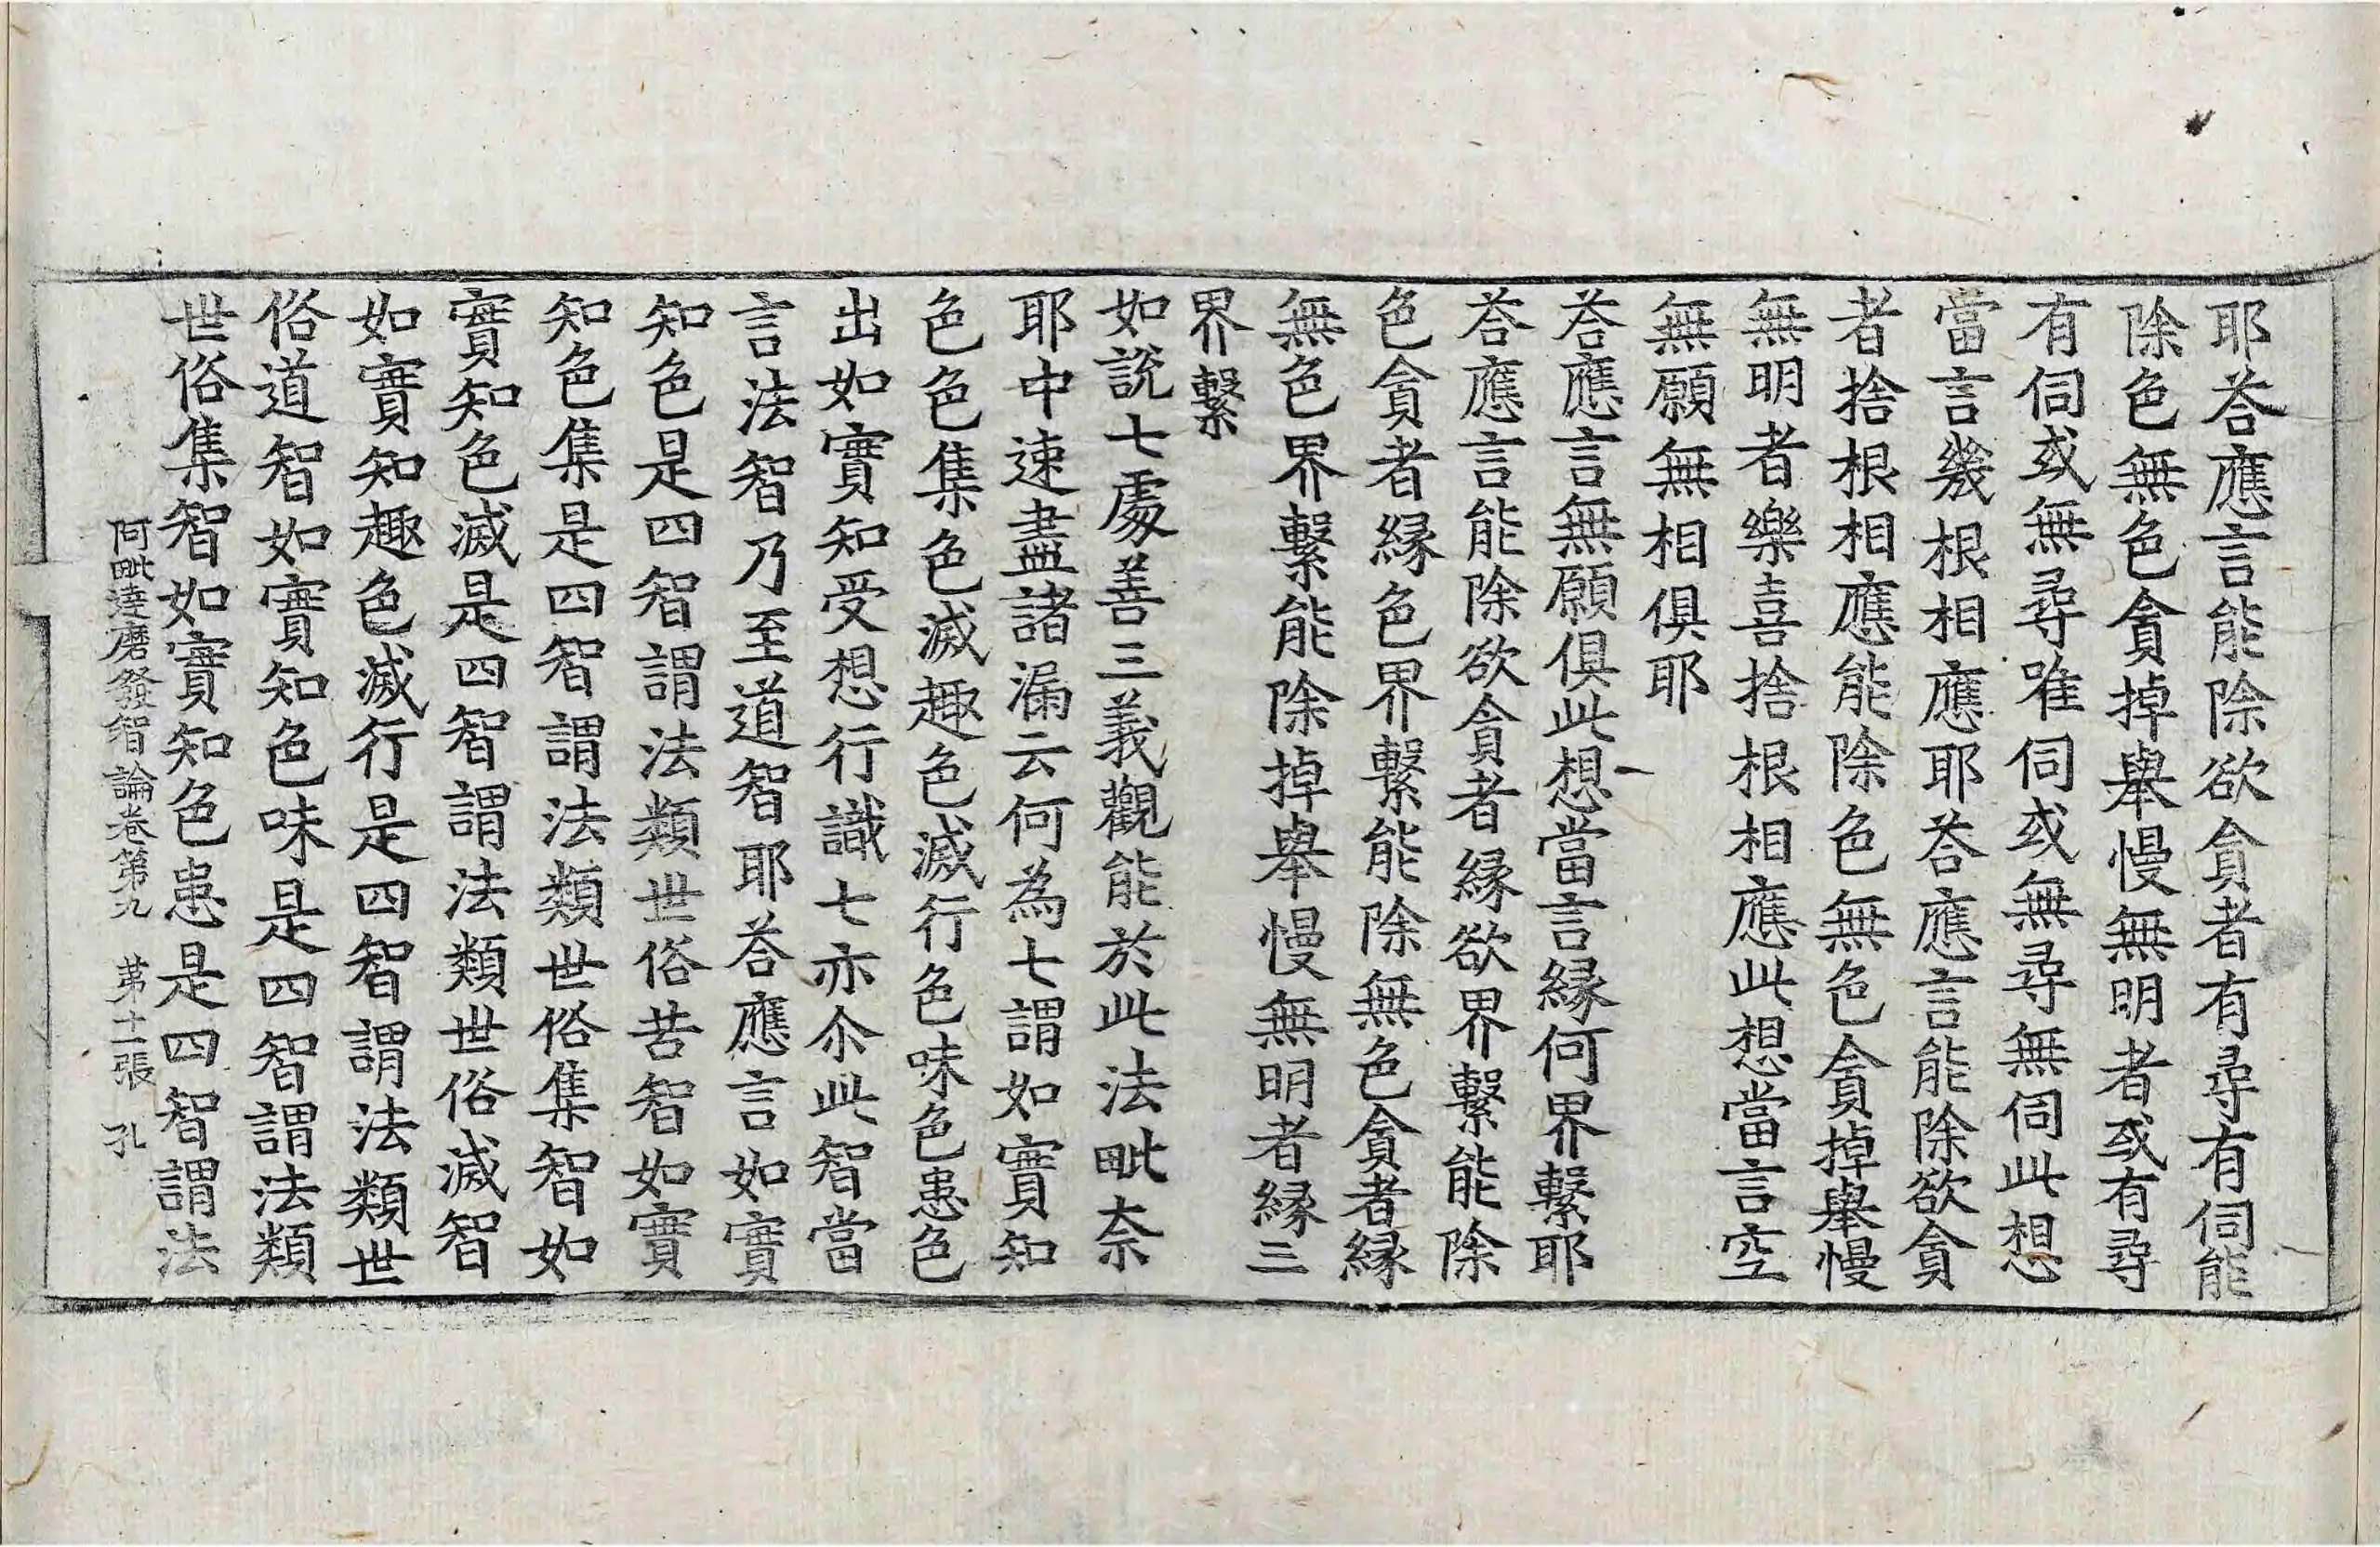 耶荅應言能除欲貪者有尋有伺能
除色無色貪掉舉慢無明者或有尋
有伺或無尋唯伺或無尋無伺此想
當言幾根相應耶荅應言能除欲貪
者捨根相應能除色無色貪掉舉慢
無明者樂喜捨根相應此想當言空
無願無相俱耶
荅應言無願俱此想當言緣何界繫耶
荅應言能除欲貪者緣欲界繫能除
色貪者緣色界繫能除無色貪者緣
無色界繫能除掉舉慢無明者緣三
界繫
如說七處善三義觀能於此法毗柰
耶中速盡諸漏云何為七謂如實知
色色集色滅趣色滅行色味色患色
出如實知受想行識七亦尒此智當
言法智乃至道智耶荅應言如實
知色是四智謂法類世俗苦智如實
知色集是四智謂法類世俗集智如
實知色滅是四智謂法類世俗滅智
如實知趣色滅行是四智謂法類世
俗道智如實知色味是四智謂法類
世俗集智如實知色患是四智謂法
阿毗達磨發智論卷第九 第十一張 孔